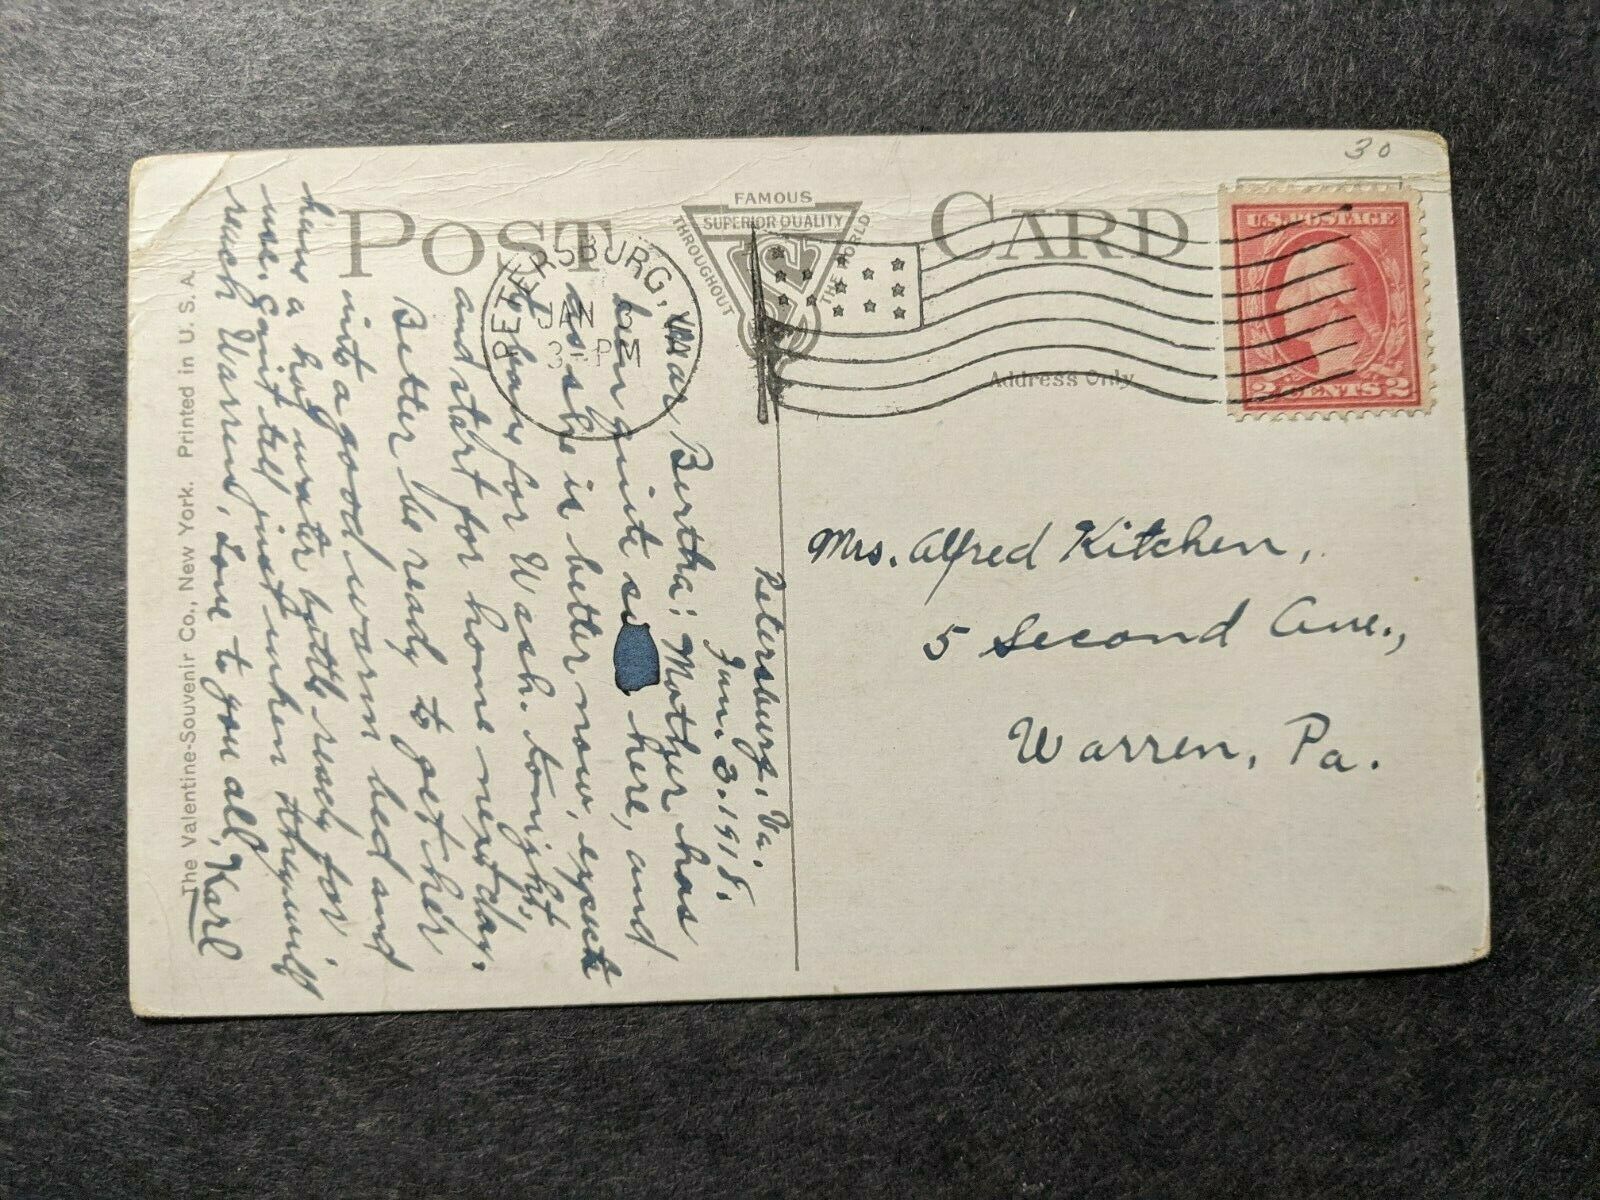 30
POST CARD
FAMOUS
SUPERIOR-QUALITY
THROUGHOUT
THE WORLD
PETERSBURG, VA
JAN
3 - PM
U.S. POSTAGE
2 CENTS 2
Address Only
Mrs. Alfred Kitchen,
5 Second Ave.,
Warren, Pa.
Petersburg, Va.
Jan. 3. 1918.
Dear Bertha: Mother has
been quite here, and
as she is better now, expects
to leave for Wash. tonight,
and start for home next day.
Better be ready to get her
into a good warm bed and
have a hot water bottle ready for
me. Can't tell just when they will
reach Warren. Love to you all, Karl
The Valentine-Souvenir Co., New York. Printed in U. S. A.